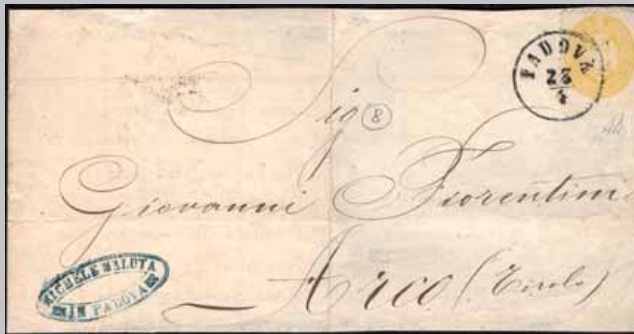 PADOVA
23
4
Sig
8
Giovanni Fiorentini
Arco (Tirolo)
MICHELE MALUTA
IN PADOVA